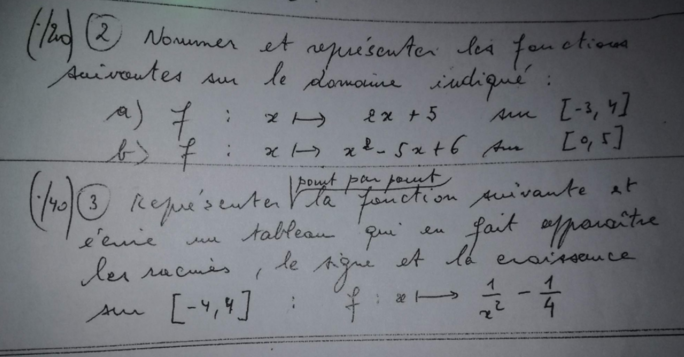 (./20) ② Nommer et représenter les fonctions
suivantes sur le domaine indiqué :
a) f : x ↦ 2x + 5 sur [-3, 4]
b) f : x ↦ x² - 5x + 6 sur [0, 5]
(./40) ③ Représenter point par point la fonction suivante et
écrire un tableau qui en fait apparaître
les racines, le signe et la croissance
sur [-4, 4] : f : x ↦ 1/x² - 1/4